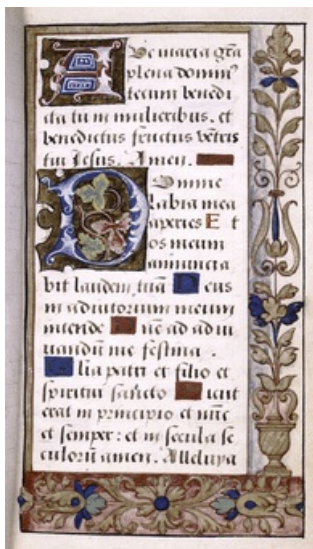 Ave maria gr̃a
plena dominꝰ
tecum benedi
cta tu in mulieribus. et
benedictus fructus ve͂tris
tui Jesus. Amen.
Domine
labia mea
aperies Et
os meum
annuncia
bit laudem tuã Deus
in adiutorium meum
intende ne ad adiu
uandũ me festina.
Glia patri et filio et
spiritui sancto Sicut
erat in principio et nũc
et semper: et in secula se
culorum amen. Alleluya